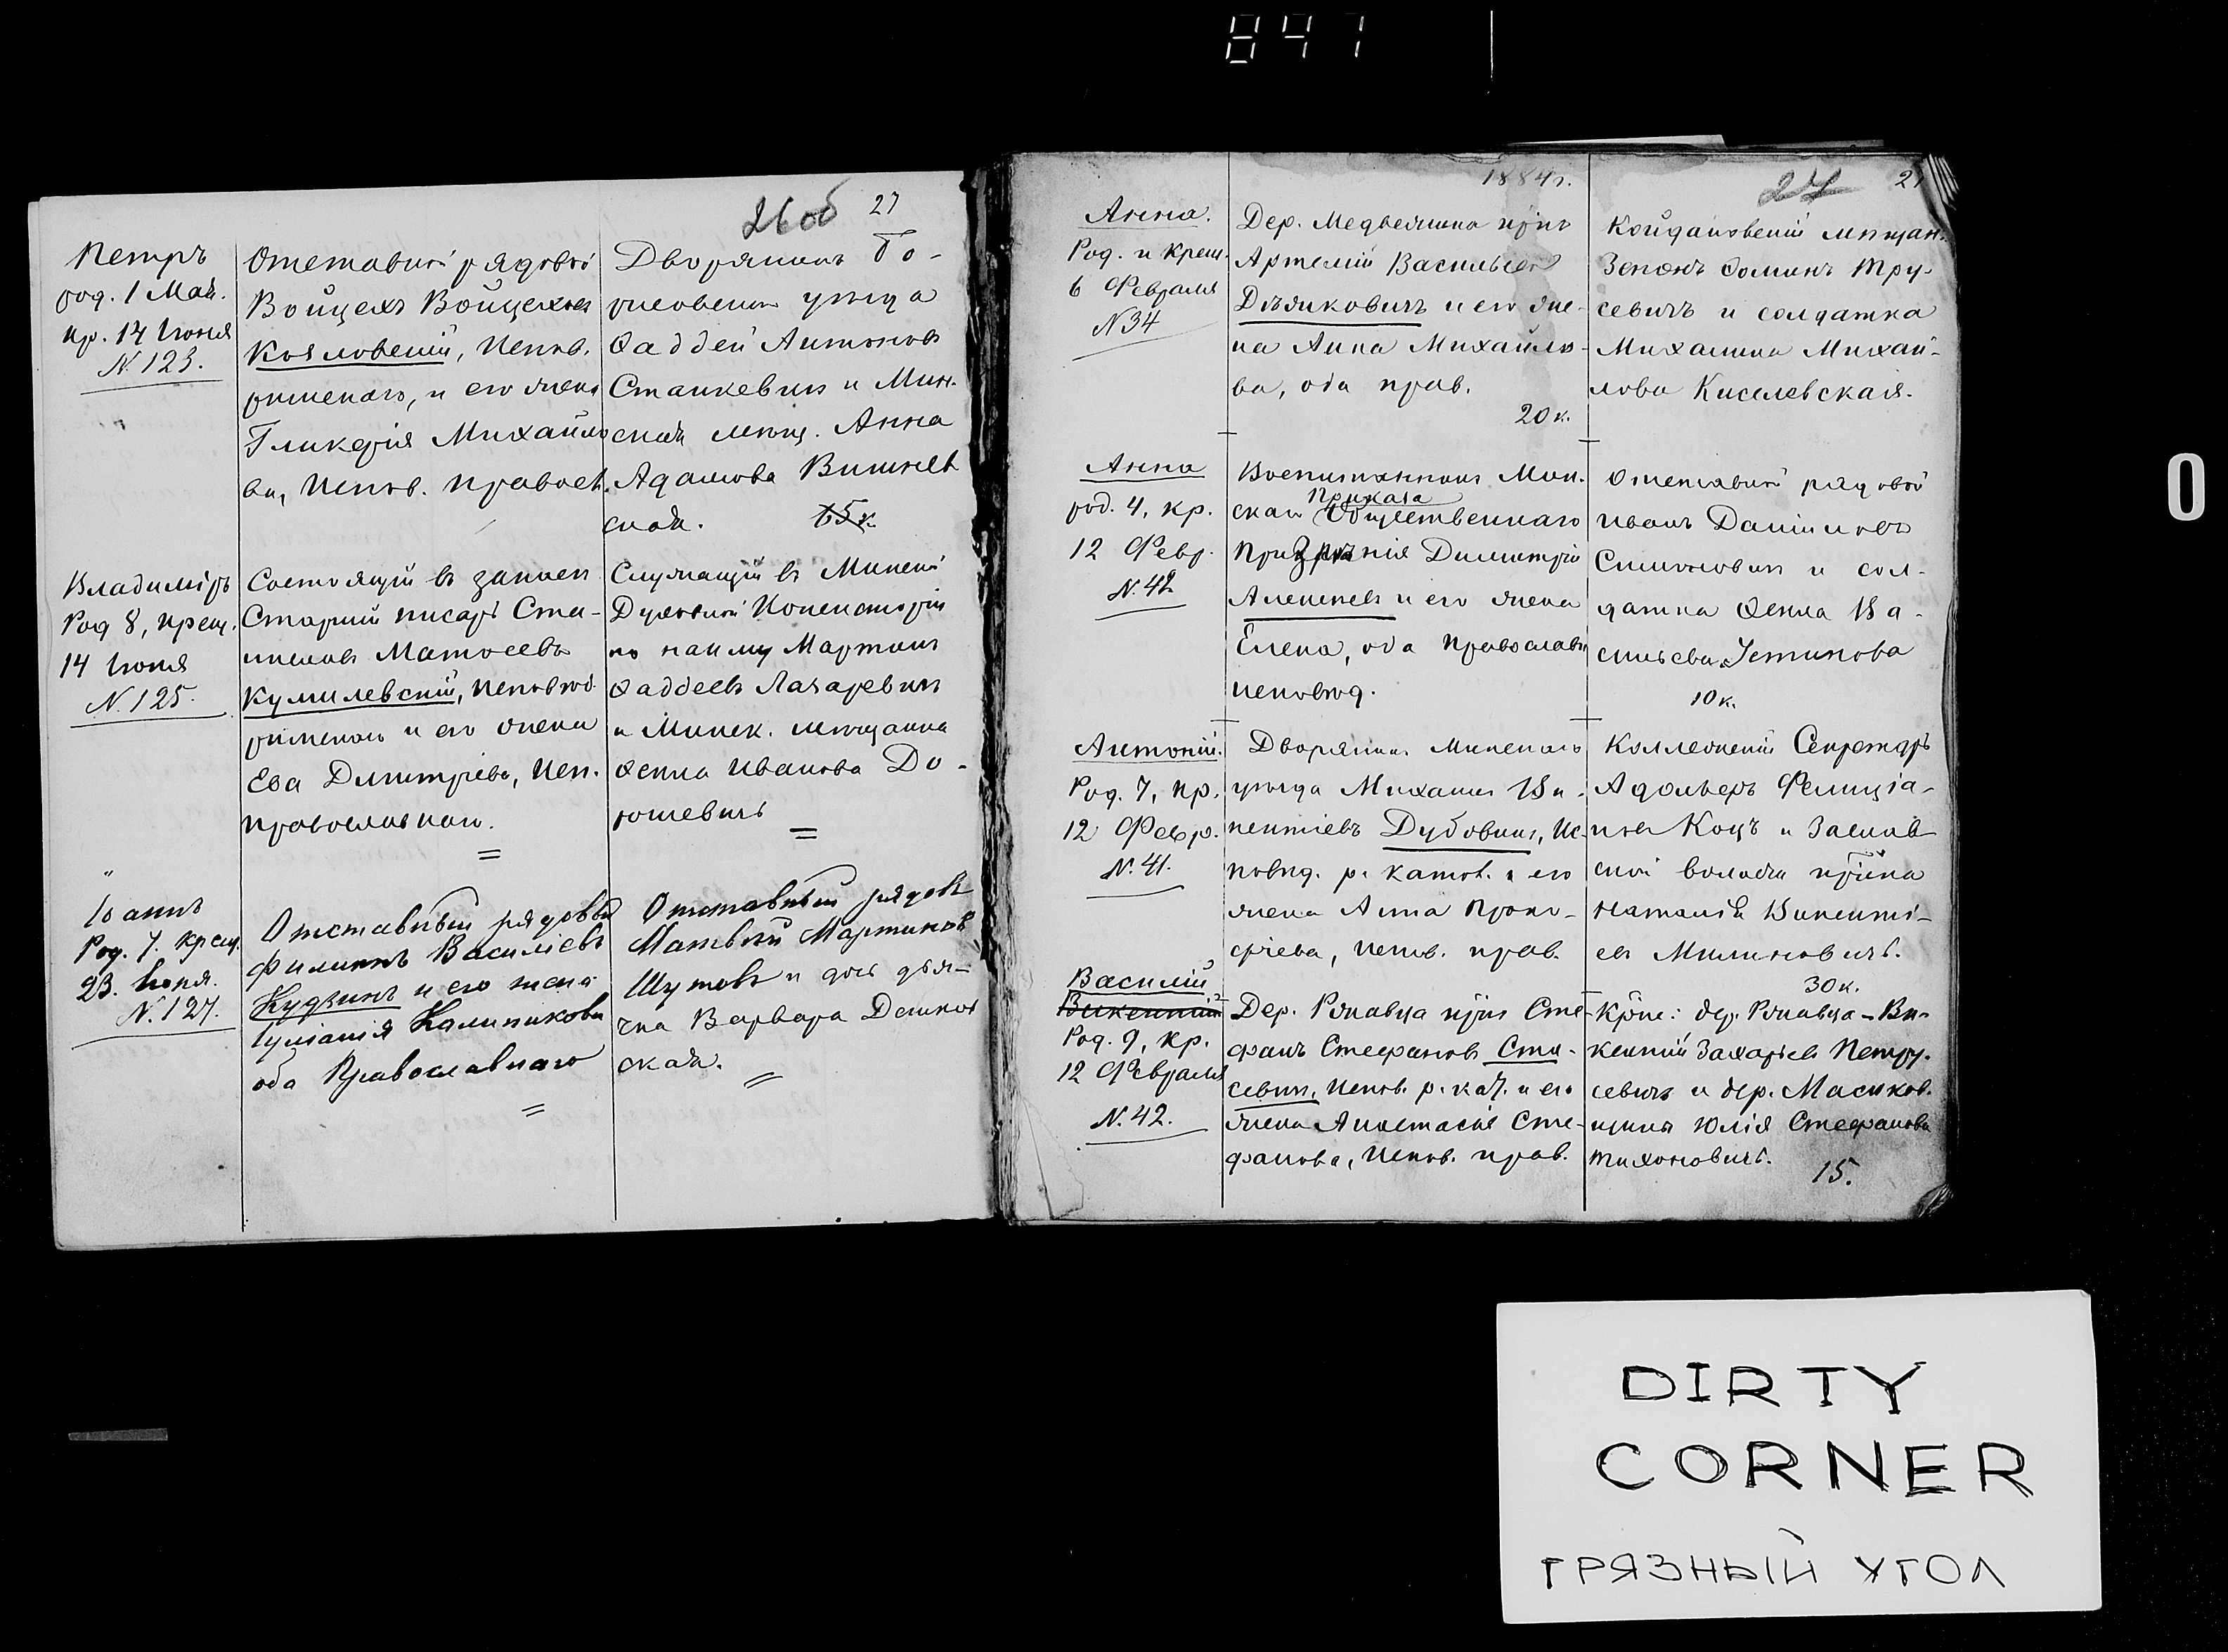 841
26об 27
Петръ
род. 1 Мая.
кр. 14 Іюня
N. 123.
Отставной рядовой
Войцехъ Войцеховъ
Козловскій, испов.
римскаго, и его жена
Гликерія Михайло
ва, испов. правосл.
Дворянинъ Бо-
рисовскаго уѣзда
Фаддей Антоновъ
Станкевичъ и Мин.
ская мѣщ. Анна
Адамова Вишнев
ская. 65к.
Владиміръ
Род 8, крещ.
14 Іюня
N. 125.
Состоящій въ запасѣ
Старшій писарь Ста-
ниславъ Матѳеевъ
Кумилевскій, исповѣд.
римскаго и его жена
Ева Димитріева, исп.
православнаго.
Служащій въ Минской
Духовной Консисторіи
по найму Мартинъ
Фаддеевъ Лазаревичъ
и Минск. мѣщанка
Ѳекла Иванова До-
рошевичъ
Іоаннъ
Род. 7. Крещ.
23. Іюня.
N. 127.
Отставный рядовый
Филиппъ Василіевъ
Кудзинъ и его жена
Іуліанія Калиникова
оба Православнаго
Отставный рядов
Матвѣй Мартинов
Шутовъ и дочь дья-
чка Варвара
ская.
1884г. 27 27
Анна.
Род. и Крещ.
6 Февраля
N 34
Дер. Медвежина кр-нъ
Артемій Васильевъ
Дѣжковичъ и его же-
на Анна Михайло-
ва, оба прав.
20 к.
Койдановскій мѣщан.
Зенонъ Ѳоминъ Тру-
севичъ и солдатка
Михалина Михай-
лова Киселевская.
Анна
род. 4, кр.
12 Февр.
N. 42
Воспитанникъ Мин.
скаго Приказа Общественнаго
Призрѣнія Димитрій
Алексѣевъ и его жена
Елена, оба православн
исповѣд.
Отставной рядовой
Иванъ Даніиловъ
Симоновичъ и сол-
датка Ѳекла Ва-
сильева Устинова
10 к.
Антоній.
Род. 7, кр.
12 Февр.
N. 41.
Дворянинъ Минскаго
уѣзда Михаилъ Ви-
кентіевъ Дубовикъ, Ис-
повѣд. р. катол. и его
жена Анна Проко-
фіева, испов. прав.
Коллежскій Секретарь
Адольфъ Фелиціа-
новъ Коцъ и Заслав
ской волости кр-нка
Наталія Викенті-
ева Милиновичъ.
30 к.
Василій
Викентій
Род. 9, кр.
12 Февраля
N. 42.
Дер. Ржавца кр-нъ Сте-
фанъ Стефановъ Ста-
севичъ, испов. р. кат. и его
жена Анастасія Сте-
фанова, испов. прав.
Кр-не: дер. Ржавца - Ви-
кентій Захаріевъ Петру-
севичъ и дер. Масюков-
щины Юлія Стефанова
Тихоновичъ.
15.
0
DIRTY
CORNER
ГРЯЗНЫЙ УГОЛ